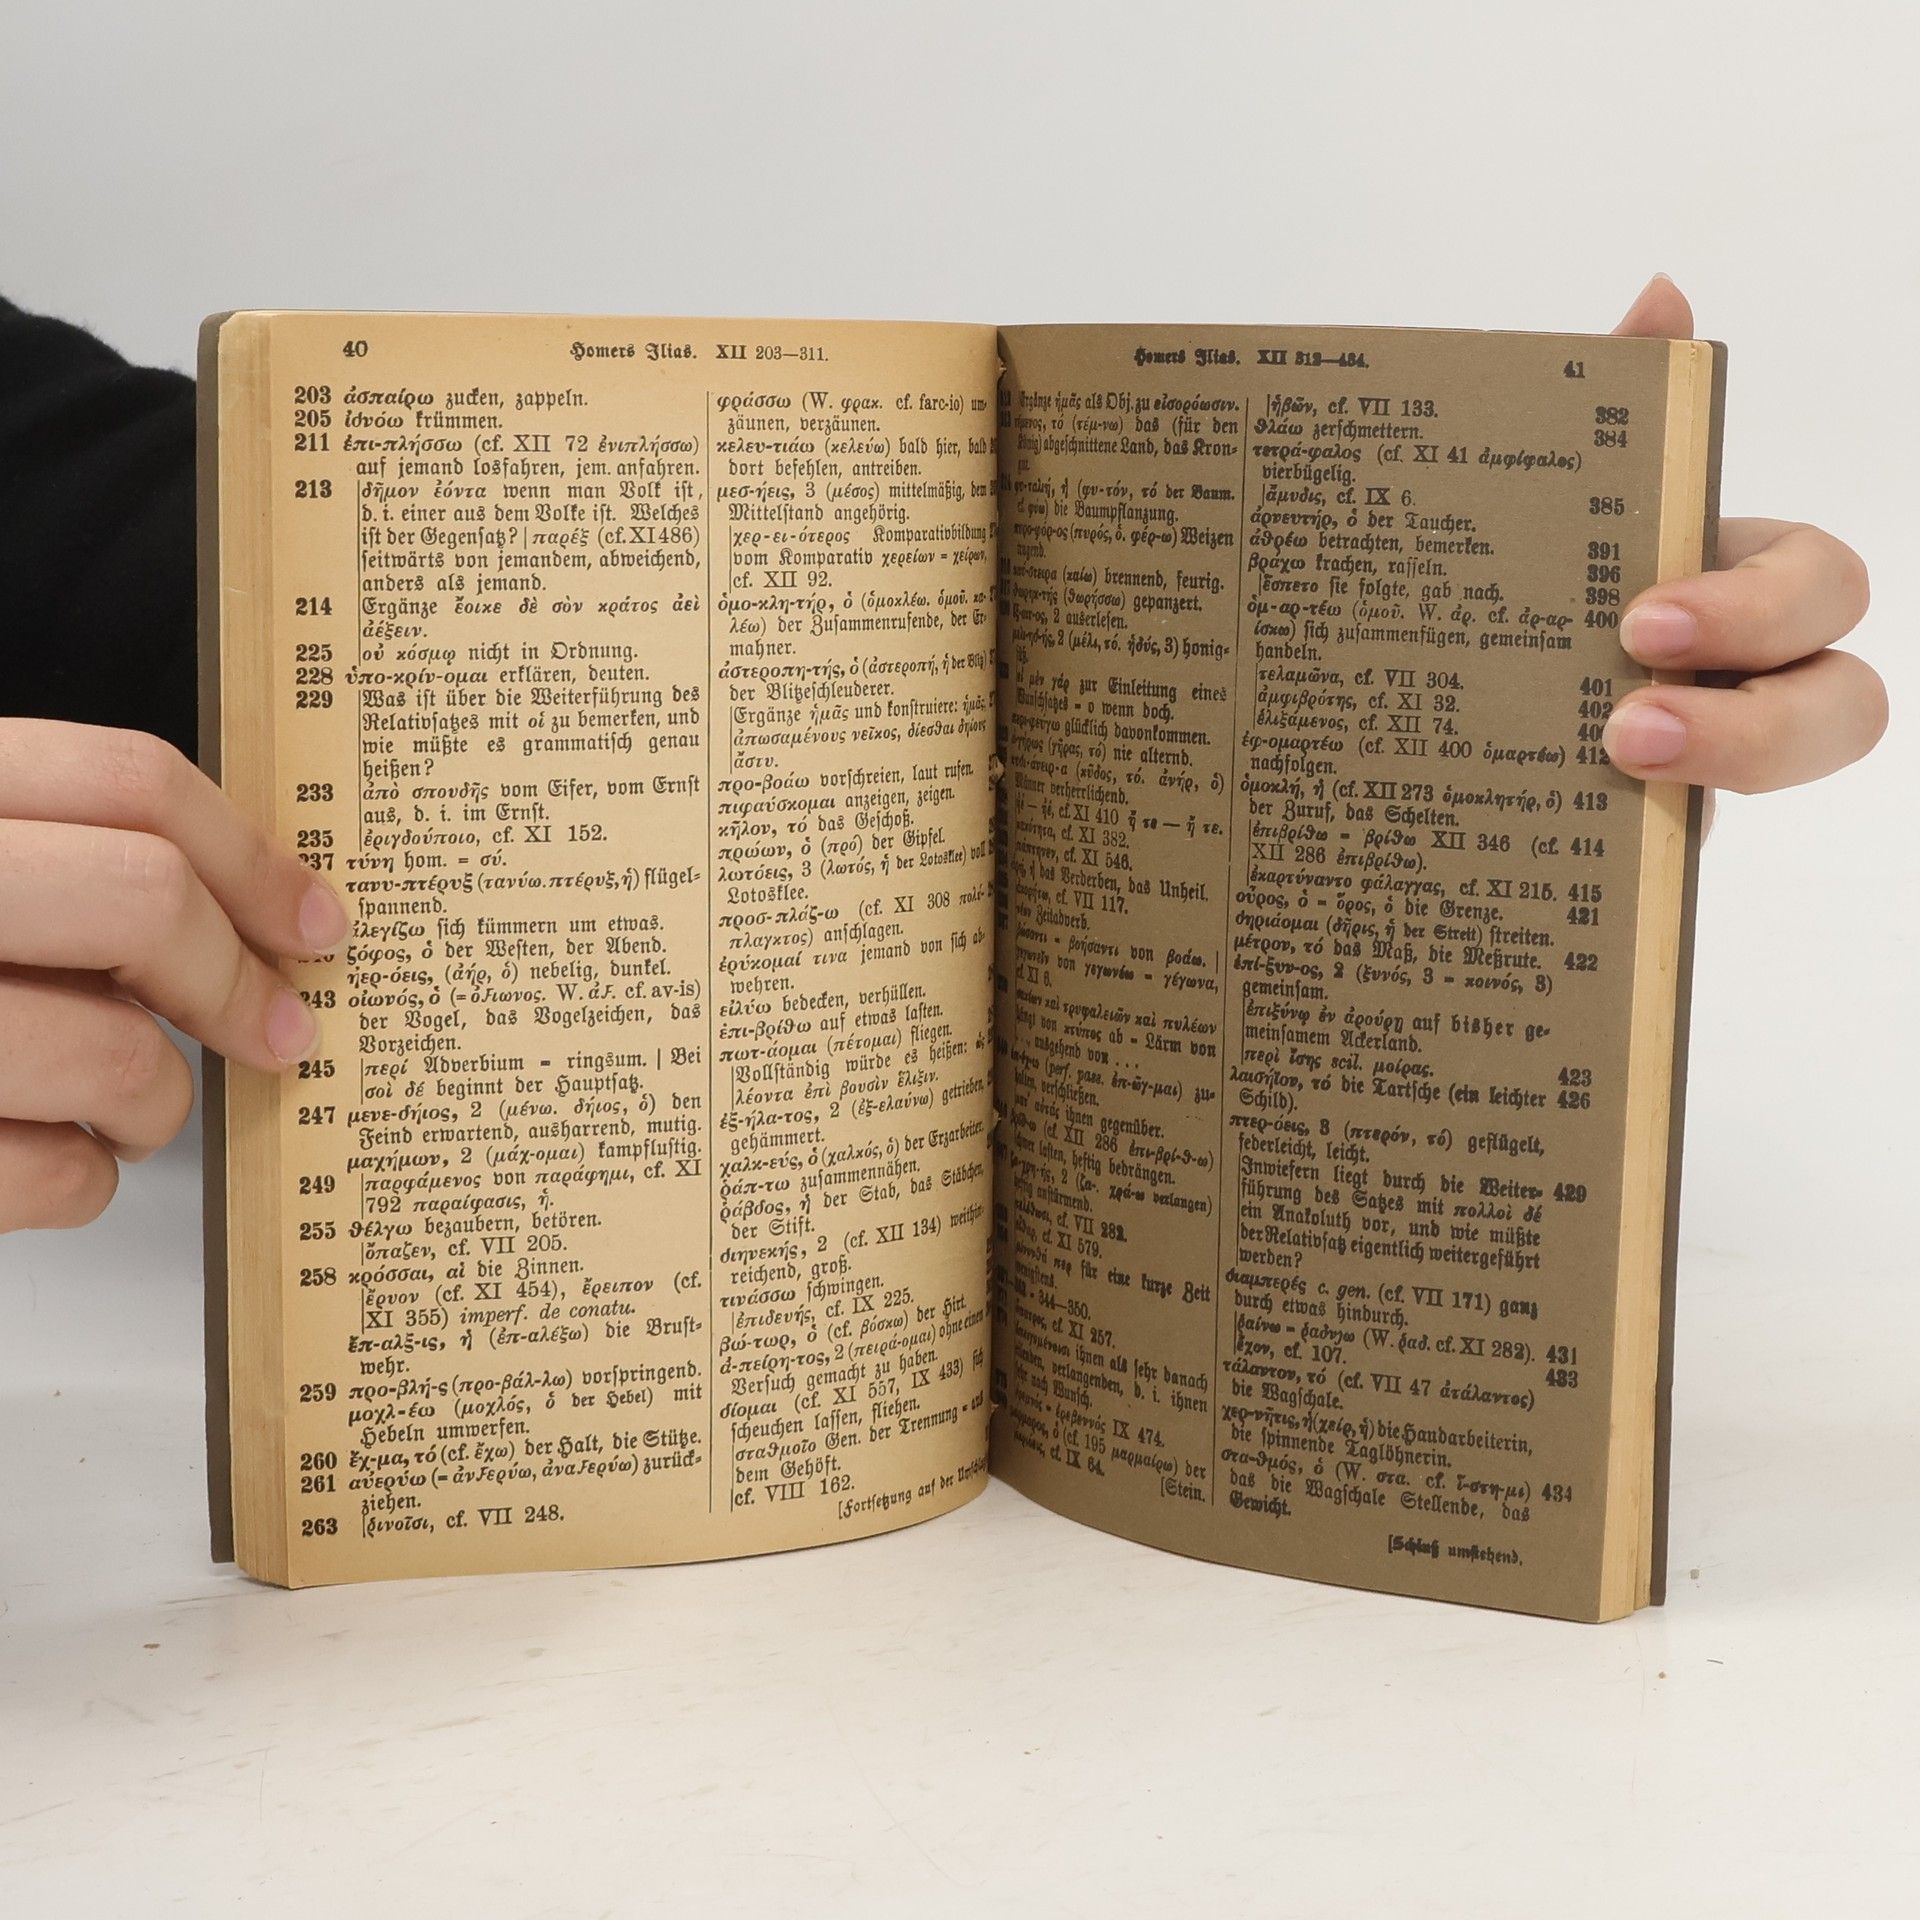 40 Homers Ilias. XII 203—311.
203 ἀσπαίρω zucken, zappeln.
205 ἰδνόω krümmen.
211 ἐπι-πλήσσω (cf. XII 72 ἐνιπλήσσω)
auf jemand losfahren, jem. anfahren.
213 δῆμον ἐόντα wenn man Volk ist,
d. i. einer aus dem Volke ist. Welches
ist der Gegensatz? | παρέξ (cf. XI 486)
seitwärts von jemandem, abweichend,
anders als jemand.
214 Ergänze ἔοικε δὲ σὸν κράτος ἀεὶ
ἀέξειν.
225 οὐ κόσμῳ nicht in Ordnung.
228 ὑπο-κρίν-ομαι erklären, deuten.
229 Was ist über die Weiterführung des
Relativsatzes mit οἱ zu bemerken, und
wie müßte es grammatisch genau
heißen?
233 ἀπὸ σπουδῆς vom Eifer, vom Ernst
aus, d. i. im Ernst.
235 ἐριγδούποιο, cf. XI 152.
237 τύνη hom. = σύ.
τανυ-πτέρυξ (τανύω. πτέρυξ, ἡ) flügel-
spannend.
ἀλεγίζω sich kümmern um etwas.
ζόφος, ὁ der Westen, der Abend.
ἠερ-όεις, (ἀήρ, ὁ) nebelig, dunkel.
243 οἰωνός, ὁ (= ὀϝιωνος. W. ἀϝ. cf. av-is)
der Vogel, das Vogelzeichen, das
Vorzeichen.
245 περί Adverbium = ringsum. | Bei
σοὶ δέ beginnt der Hauptsatz.
247 μενε-δήιος, 2 (μένω. δήιος, ὁ) den
Feind erwartend, ausharrend, mutig.
μαχήμων, 2 (μάχ-ομαι) kampflustig.
249 παρφάμενος von παράφημι, cf. XI
792 παραίφασις, ἡ.
255 θέλγω bezaubern, betören.
ὄπαζεν, cf. VII 205.
258 κρόσσαι, αἱ die Zinnen.
ἔρυον (cf. XI 454), ἔρειπον (cf.
XI 355) imperf. de conatu.
ἔπ-αλξ-ις, ἡ (ἐπ-αλέξω) die Brust-
wehr.
259 προ-βλή-ς (προ-βάλ-λω) vorspringend.
μοχλ-έω (μοχλός, ὁ der Hebel) mit
Hebeln umwerfen.
260 ἔχ-μα, τό (cf. ἔχω) der Halt, die Stütze.
261 αὐερύω (= ἀνϝερύω, ἀναϝερύω) zurück-
ziehen.
263 ῥινοῖσι, cf. VII 248.
φράσσω (W. φρακ. cf. farc-io) um-
zäunen, verzäunen.
κελευ-τιάω (κελεύω) bald hier, bald
dort befehlen, antreiben.
μεσ-ήεις, 3 (μέσος) mittelmäßig, dem
Mittelstand angehörig.
χερ-ει-ότερος Komparativbildung
vom Komparativ χερείων = χείρων,
cf. XII 92.
ὁμο-κλη-τήρ, ὁ (ὁμοκλέω. ὁμοῦ. κα-
λέω) der Zusammenrufende, der Er-
mahner.
ἀστεροπη-τής, ὁ (ἀστεροπή, ἡ der Blitz)
der Blitzeschleuderer.
Ergänze ἡμᾶς und konstruiere: ἡμᾶς,
ἀπωσαμένους νεῖκος, δίεσθαι δηίους
ἄστυ.
προ-βοάω vorschreien, laut rufen.
πιφαύσκομαι anzeigen, zeigen.
κῆλον, τό das Geschoß.
πρώων, ὁ (πρό) der Gipfel.
λωτόεις, 3 (λωτός, ἡ der Lotosklee) voll
Lotosklee.
προσ-πλάζ-ω (cf. XI 308 πολύ-
πλαγκτος) anschlagen.
ἐρύκομαί τινα jemand von sich ab-
wehren.
εἰλύω bedecken, verhüllen.
ἐπι-βρίθω auf etwas lasten.
πωτ-άομαι (πέτομαι) fliegen.
Vollständig würde es heißen: ὡς
λέοντα ἐπὶ βουσὶν ἕλιξιν.
ἐξ-ήλα-τος, 2 (ἐξ-ελαύνω) getrieben,
gehämmert.
χαλκ-εύς, ὁ (χαλκός, ὁ) der Erzarbeiter.
ῥάπ-τω zusammennähen.
ῥάβδος, ἡ der Stab, das Stäbchen,
der Stift.
διηνεκής, 2 (cf. XII 134) weithin-
reichend, groß.
τινάσσω schwingen.
ἐπιδευής, cf. IX 225.
βώ-τωρ, ὁ (cf. βόσκω) der Hirt.
ἀ-πείρη-τος, 2 (πειρά-ομαι) ohne einen
Versuch gemacht zu haben.
δίομαι (cf. XI 557, IX 433) sich
scheuchen lassen, fliehen.
σταθμοῖο Gen. der Trennung = aus
dem Gehöft.
cf. VIII 162.
[Fortsetzung auf der
Homers Ilias. XII 312—434. 41
Ergänze ἡμᾶς als Obj. zu εἰσορόωσιν.
τέμενος, τό (τέμ-νω) das (für den
König) abgeschnittene Land, das Kron-
gut.
φυ-ταλιή, ἡ (φυ-τόν, τό der Baum.
cf. φύω) die Baumpflanzung.
πυρο-φόρ-ος (πυρός, ὁ. φέρ-ω) Weizen
tragend.
καύ-στειρα (καίω) brennend, feurig.
θωρηκ-τής (θωρήσσω) gepanzert.
ἔξαι-τος, 2 auserlesen.
μελι-ηδής, 2 (μέλι, τό. ἡδύς, 3) honig-
süß.
εἰ μὲν γάρ zur Einleitung eines
Wunschsatzes = o wenn doch.
περι-φεύγω glücklich davonkommen.
ἀγήρως (γῆρας, τό) nie alternd.
κυδι-άνειρ-α (κῦδος, τό. ἀνήρ, ὁ)
Männer verherrlichend.
ἠέ — ἠέ, cf. XI 410 ἤ τε — ἤ τε.
cf. XI 382.
πάπτηνεν, cf. XI 546.
ἀρή, ἡ das Verderben, das Unheil.
cf. VII 117.
νέον Zeitadverb.
βώσαντι = βοήσαντι von βοάω. |
γεγωνεῖν von γεγωνέω = γέγωνα,
cf. XI 6.
σακέων καὶ τρυφαλειῶν καὶ πυλέων
hängt von κτύπος ab = Lärm von
... ausgehend von ...
(perf. pass. ἐπ-ῶχ-μαι) zu-
halten, verschließen.
κατ' αὐτάς ihnen gegenüber.
(cf. XII 286 ἐπι-βρί-θ-ω)
schwer lasten, heftig bedrängen.
ζα-χρη-ής, 2 (ζα-. χρά-ω verlangen)
heftig anstürmend.
cf. VII 282.
cf. XI 579.
περ für eine kurze Zeit
wenigstens.
= 344—350.
cf. XI 257.
ihnen als sehr danach
verlangenden, d. i. ihnen
sehr nach Wunsch.
= ἐρεβεννός IX 474.
μάρμαρος, ὁ (cf. 195 μαρμαίρω) der
cf. IX 64. [Stein.
ἡβῶν, cf. VII 133. 382
θλάω zerschmettern. 384
τετρά-φαλος (cf. XI 41 ἀμφίφαλος)
vierbügelig.
ἄμυδις, cf. IX 6. 385
ἀρνευτήρ, ὁ der Taucher.
ἀθρέω betrachten, bemerken. 391
βράχω krachen, rasseln. 396
ἕσπετο sie folgte, gab nach. 398
ὁμ-αρ-τέω (ὁμοῦ. W. ἀρ. cf. ἀρ-αρ- 400
ίσκω) sich zusammenfügen, gemeinsam
handeln.
τελαμῶνα, cf. VII 304. 401
ἀμφιβρότης, cf. XI 32. 402
ἑλιξάμενος, cf. XII 74.
ἐφ-ομαρτέω (cf. XII 400 ὁμαρτέω) 412
nachfolgen.
ὁμοκλή, ἡ (cf. XII 273 ὁμοκλητήρ, ὁ) 413
der Zuruf, das Schelten.
ἐπιβρίθω = βρίθω XII 346 (cf. 414
XII 286 ἐπιβρίθω).
ἐκαρτύναντο φάλαγγας, cf. XI 215. 415
οὖρος, ὁ = ὅρος, ὁ die Grenze. 421
δηριάομαι (δῆρις, ἡ der Streit) streiten.
μέτρον, τό das Maß, die Meßrute. 422
ἐπί-ξυν-ος, 2 (ξυνός, 3 = κοινός, 3)
gemeinsam.
ἐπιξύνῳ ἐν ἀρούρῃ auf bisher ge-
meinsamem Ackerland.
περὶ ἴσης scil. μοίρας. 423
λαισήϊον, τό die Tartsche (ein leichter 426
Schild).
πτερ-όεις, 3 (πτερόν, τό) geflügelt,
federleicht, leicht.
Inwiefern liegt durch die Weiter- 429
führung des Satzes mit πολλοὶ δέ
ein Anakoluth vor, und wie müßte
der Relativsatz eigentlich weitergeführt
werden?
διαμπερές c. gen. (cf. VII 171) ganz
durch etwas hindurch.
ῥαίνω = ῥαδνjω (W. ῥαδ. cf. XI 282). 431
ἔχον, cf. 107. 433
τάλαντον, τό (cf. VII 47 ἀτάλαντος)
die Wagschale.
χερ-νῆτις, ἡ (χείρ, ἡ) die Handarbeiterin,
die spinnende Taglöhnerin.
στα-θμός, ὁ (W. στα. cf. ἵ-στη-μι) 434
das die Wagschale Stellende, das
Gewicht.
[Schluß umstehend.